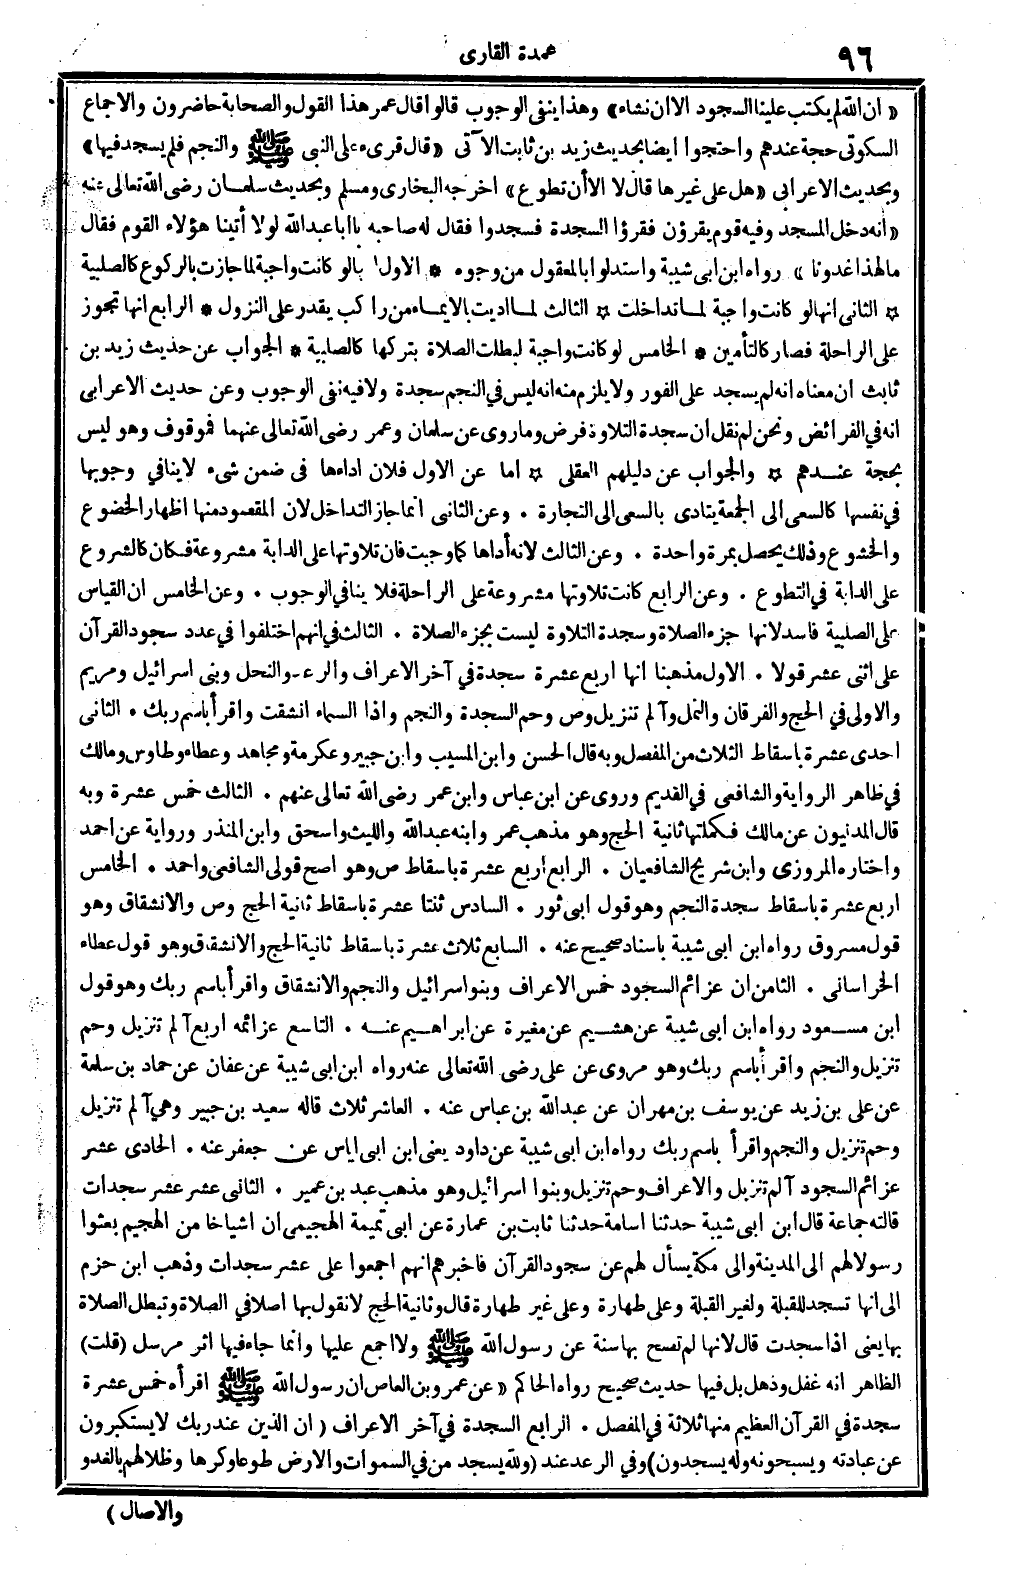 ٩٦
عمدة القارى
« ان الله لم يكتب علينا السجود الا ان نشاء» وهذا ينفى الوجوب قالوا قال عمر هذا القول والصحابة حاضرون والاجماع
السكوتى حجة عندهم واحتجوا ايضا بحديث زيد بن ثابت الآتى «قال قرىء على النبى ﷺ والنجم فلم يسجد فيها»
وبحديث الاعرابى «هل على غيرها قال لا الا أن تطوع» اخرجه البخارى ومسلم وبحديث سلمان رضى الله تعالى عنه
«انه دخل المسجد وفيه قوم يقرؤن فقرؤا السجدة فسجدوا فقال له صاحبه يا ابا عبد الله لولا أتينا هؤلاء القوم فقال
مالهذا غدونا» رواه ابن ابى شيبة واستدلوا بالمعقول من وجوه * الاول بالو كانت واجبة لما جازت بالركوع كالصلبية
* الثانى انها لو كانت واجبة لما تداخلت * الثالث لما اديت بالايماء من راكب يقدر على النزول * الرابع انها تجوز
على الراحلة فصار كالتأمين * الخامس لو كانت واجبة لبطلت الصلاة بتركها كالصلبية * الجواب عن حديث زيد بن
ثابت ان معناه انه لم يسجد على الفور ولا يلزم منه انه ليس في النجم سجدة ولا فيه نفى الوجوب وعن حديث الاعرابى
انه في الفرائض ونحن لم نقل ان سجدة التلاوة فرض وما روى عن سلمان وعمر رضى الله تعالى عنهما فموقوف وهو ليس
بحجة عندهم * والجواب عن دليلهم العقلى * اما عن الاول فلان اداءها فى ضمن شىء لا ينافي وجوبها
في نفسها كالسعى الى الجمعة يتادى بالسعى الى التجارة . وعن الثانى انما جاز التداخل لان المقصود منها اظهار الخضوع
والخشوع وذلك يحصل بمرة واحدة . وعن الثالث لانه أداها كما وجبت فان تلاوتها على الدابة مشروعة فكان كالشروع
على الدابة في التطوع . وعن الرابع كانت تلاوتها مشروعة على الراحلة فلا ينافي الوجوب . وعن الخامس ان القياس
على الصلبية فاسد لانها جزء الصلاة وسجدة التلاوة ليست بجزء الصلاة . الثالث في انهم اختلفوا في عدد سجود القرآن
على اثنى عشر قولا . الاول مذهبنا انها اربع عشرة سجدة في آخر الاعراف والرعد والنحل وبنى اسرائيل ومريم
والاولى في الحج والفرقان والنمل وآلم تنزيل وص وحم السجدة والنجم واذا السماء انشقت واقرأ باسم ربك . الثانى
احدى عشرة باسقاط الثلاث من المفصل وبه قال الحسن وابن المسيب وابن جبير وعكرمة ومجاهد وعطاء وطاوس ومالك
في ظاهر الرواية والشافعى في القديم وروى عن ابن عباس وابن عمر رضى الله تعالى عنهم . الثالث خمس عشرة وبه
قال المدنيون عن مالك فكملتها ثانية الحج وهو مذهب عمر وابنه عبد الله والليث واسحق وابن المنذر ورواية عن احمد
واختاره المروزى وابن شريح الشافعيان . الرابع اربع عشرة باسقاط ص وهو اصح قولى الشافعى واحمد . الخامس
اربع عشرة باسقاط سجدة النجم وهو قول ابى ثور . السادس ثنتا عشرة باسقاط ثانية الحج وص والانشقاق وهو
قول مسروق رواه ابن ابى شيبة باسناد صحيح عنه . السابع ثلاث عشرة باسقاط ثانية الحج والانشقاق وهو قول عطاء
الخراسانى . الثامن ان عزائم السجود خمس الاعراف وبنو اسرائيل والنجم والانشقاق واقرأ باسم ربك وهو قول
ابن مسعود رواه ابن ابى شيبة عن هشيم عن مغيرة عن ابراهيم عنه . التاسع عزائمه اربع آلم تنزيل وحم
تنزيل والنجم واقرأ باسم ربك وهو مروى عن على رضى الله تعالى عنه رواه ابن ابى شيبة عن عفان عن حماد بن سلمة
عن على بن زيد عن يوسف بن مهران عن عبد الله بن عباس عنه . العاشر ثلاث قاله سعيد بن جبير وهي آلم تنزيل
وحم تنزيل والنجم واقرأ باسم ربك رواه ابن ابى شيبة عن داود يعنى ابن ابى اياس عن جعفر عنه . الحادى عشر
عزائم السجود آلم تنزيل والاعراف وحم تنزيل وبنوا اسرائيل وهو مذهب عبد بن عمير . الثانى عشر عشر سجدات
قالته جماعة قال ابن ابى شيبة حدثنا اسامة حدثنا ثابت بن عمارة عن ابى تميمة الهجيمى ان اشياخا من الهجيم بعثوا
رسولا لهم الى المدينة والى مكة يسأل لهم عن سجود القرآن فاخبرهم انهم اجمعوا على عشر سجدات وذهب ابن حزم
الى انها تسجد للقبلة ولغير القبلة وعلى طهارة وعلى غير طهارة قال وثانية الحج لا نقول بها اصلا في الصلاة وتبطل الصلاة
بها يعنى اذا سجدت قال لانها لم تصح بها سنة عن رسول الله ﷺ ولا اجمع عليها وانما جاء فيها اثر مرسل (قلت)
الظاهر انه غفل وذهل بل فيها حديث صحيح رواه الحاكم «عن عمرو بن العاص ان رسول الله ﷺ اقرأه خمس عشرة
سجدة في القرآن العظيم منها ثلاثة في المفصل . الرابع السجدة في آخر الاعراف ( ان الذين عند ربك لا يستكبرون
عن عبادته ويسبحونه وله يسجدون) وفي الرعد عند (ولله يسجد من في السموات والارض طوعا وكرها وظلالهم بالغدو
والاصال )